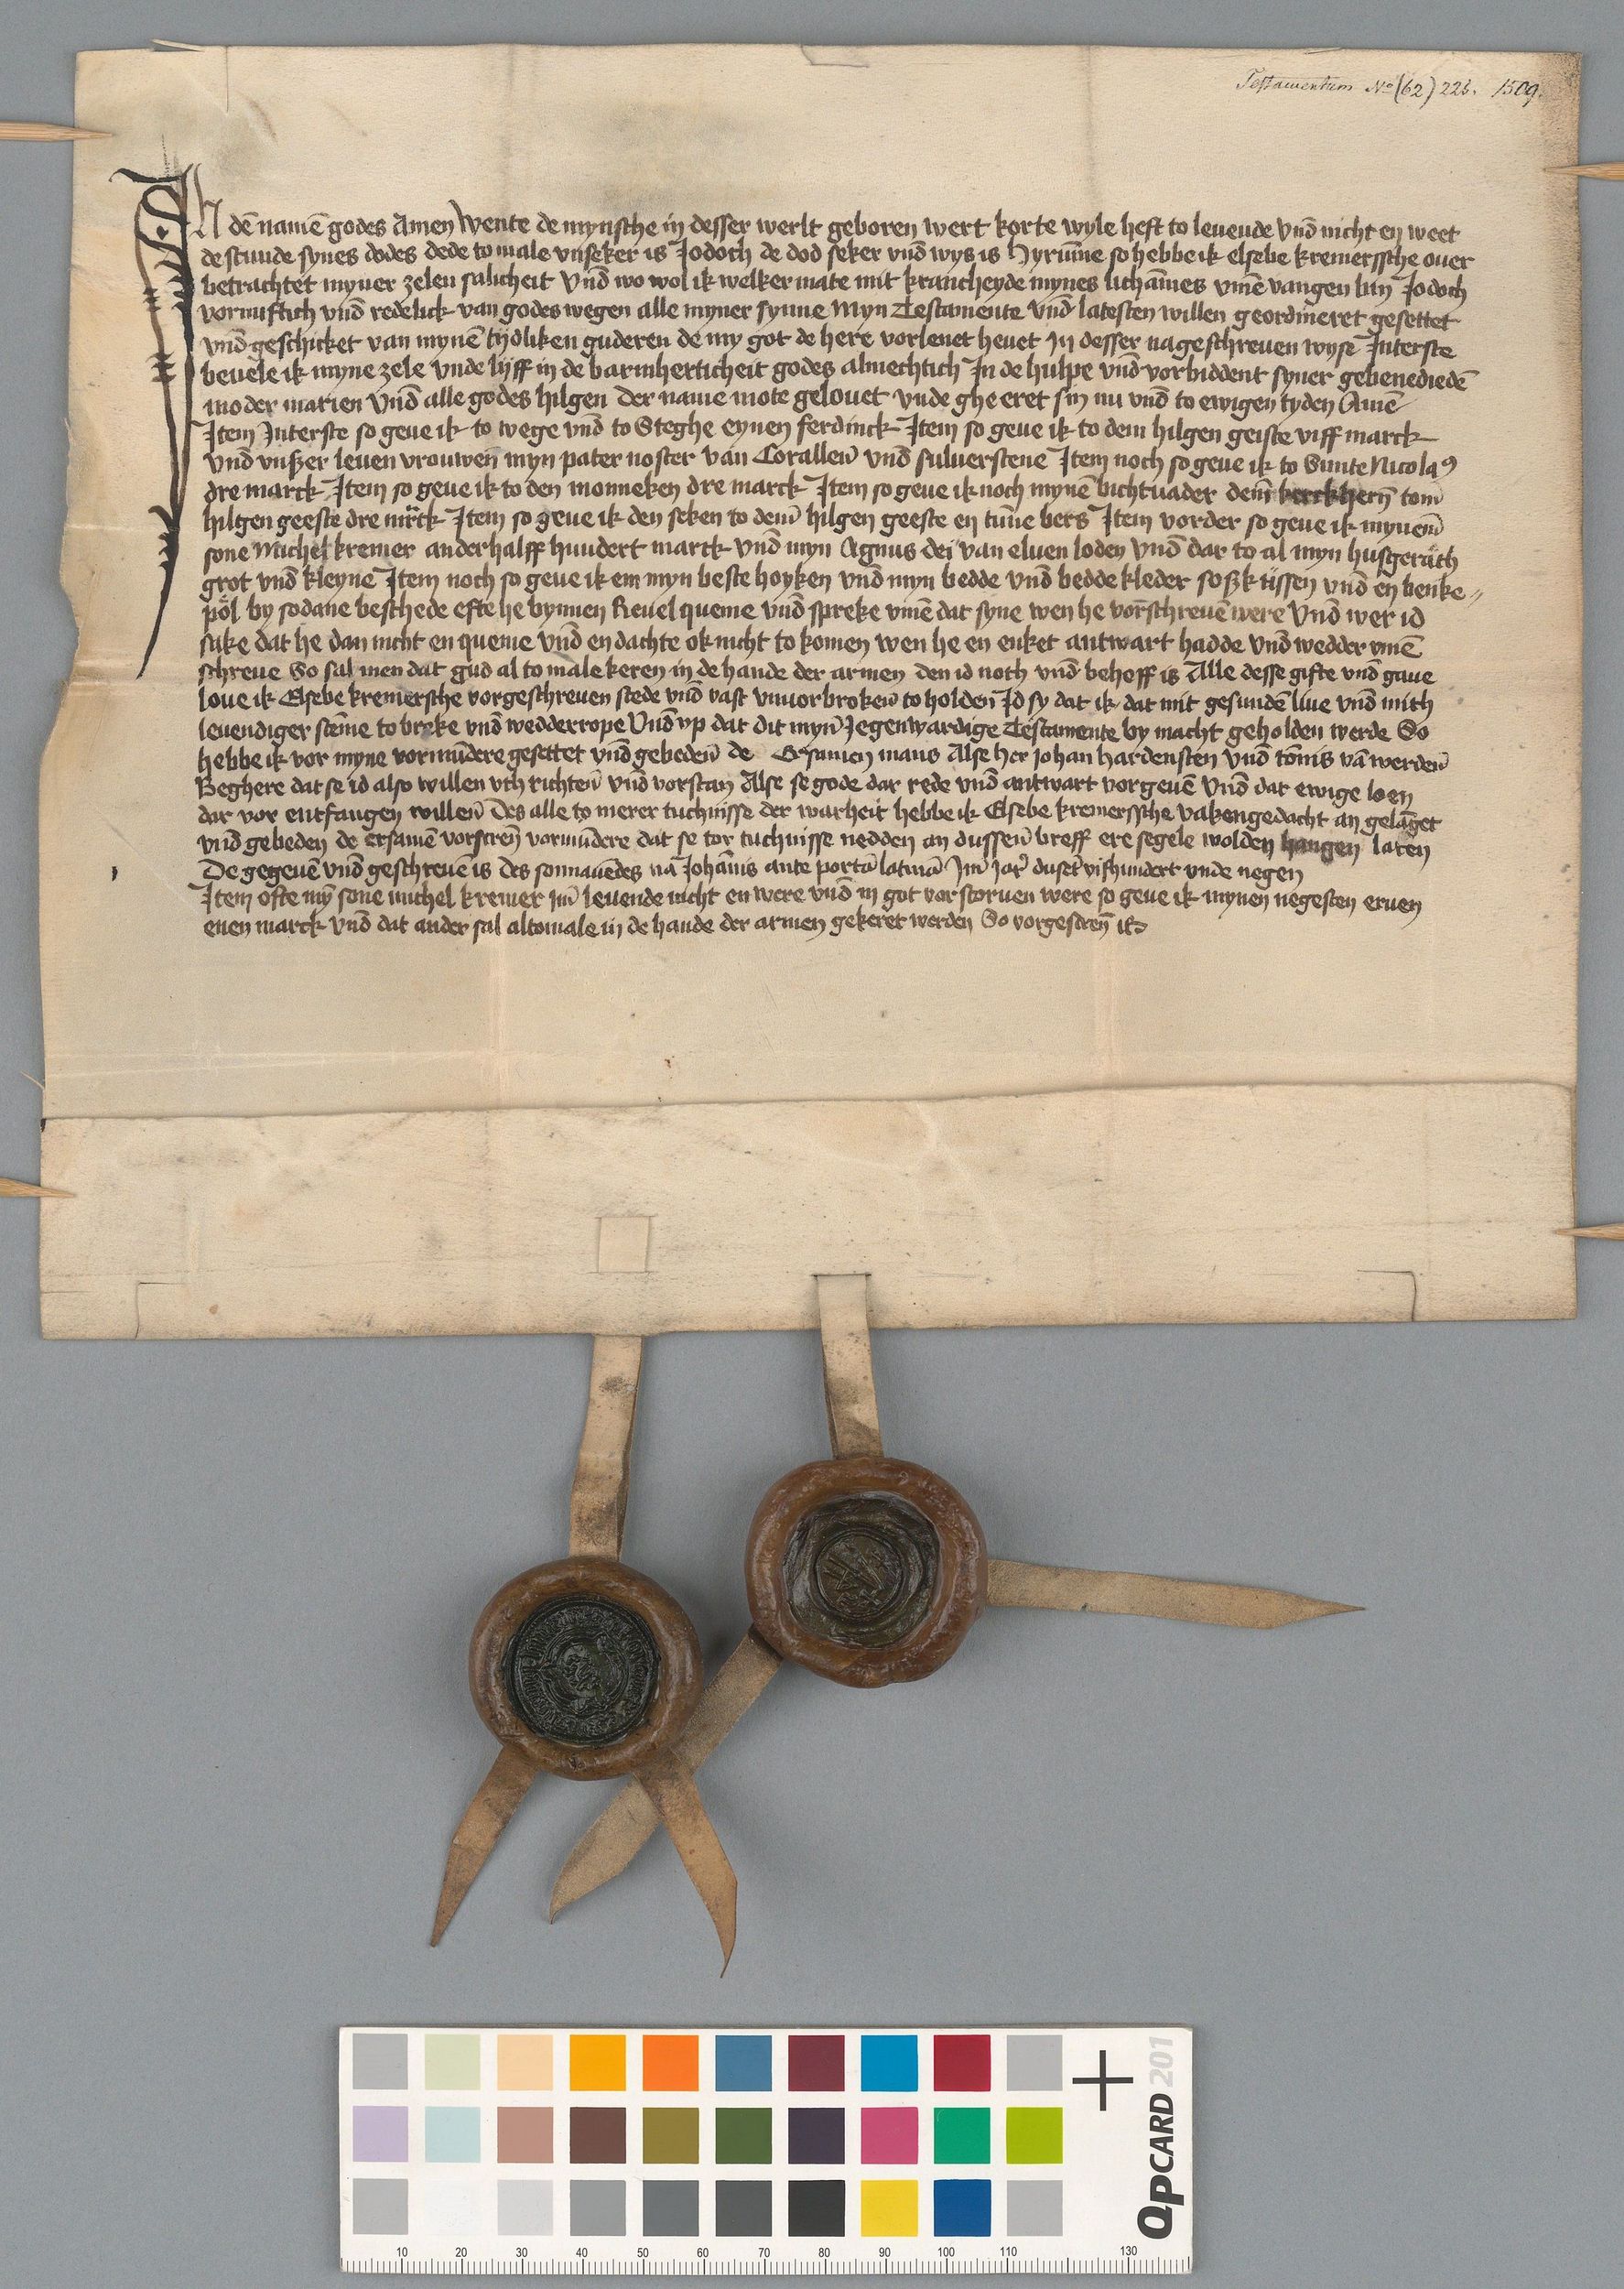 Testamentum No (62) 226. 1509.
IN dē namē godes Amen Wente de mynsche in desser werlt geboren wert korte wyle heft to leuende vnd̄ nicht en weet
de stunde synes dodes dede to male vnseker is Jodoch de dod seker vnd̄ wys is Hyrūme so hebbe ik elsebe kremerssche ouer
betrachtet myner zelen salicheit Vnd̄ wo wol ik welker mate mit krancheyde mynes lichāmes vmē vangen bin Jodoch
vornuftich vnd̄ redelick van godes wegen alle myner synne Myn Testamente vnd̄ latesten willen geordineret gesettet
vnd̄ geschicket van mynē tydliken guderen de my got de here vorlenet heuet In desser nageschreuen wyse Interste
beuele ik myne zele vnde lyff in de barmherticheit godes almechtich In de hulpe vnd̄ vorbiddent syner gebenediedē
moder marien Vnd̄ alle godes hilgen Der name mote gelouet vnde ghe eret sin nu vnd̄ to ewigen tyden Amē
Item Interste so geue ik to wege vnd̄ to Steghe eynen ferdinck Item so geue ik to dem hilgen geiste viff marck
vnd vnßer leuen vrouwen myn pater noster van Corallen̄ vnd̄ suluerstene Item noch so geue ik to Sunte Nicolaꝰ
dre marck Item so geue ik to den monneken dre marck Item so geue ik noch mynē bichtuader dem̄ kerckhern̄ tom̄
hilgen geeste dre mrck Item so geue ik den seken to dem̄ hilgen geeste en tun̄e bers Item vorder so geue ik mynem̄
sone Michel kremer anderhalff hundert marck vnd̄ myn Agnus dei van eluen loden vnd̄ dar to al myn husgerath
grot vnd̄ kleyne Item noch so geue ik em myn beste hoyken vnd̄ myn bedde vnd̄ bedde kleder soßk ussen vnd̄ en benke〃
pol by sodane beschede efte he bynnen Reuel queme vnd̄ spreke vmē dat syne wen he vor̄schreuē were Vnd̄ wer id
sake dat he dan nicht en queme vnd̄ en dachte ok nicht to komen wen he en enket antwart hadde vnd̄ wedder vmē
schreue So sal men dat gud al to male keren in de hande der armen den id noth vnd̄ behoff is Alle desse gifte vnd̄ gaue
loue ik Elsebe kremersche vorgeschreuen stede vnd̄ vast vnuorbroken̄ to holden Id sy dat ik dat mit gesundē liue vnd̄ mith
leuendiger stem̄e to breke vnd̄ wedderrope Vnd̄ vp dat dit myn̄ Jegenwardige Testamente by macht geholden werde So
hebbe ik vor myne vormūdere gesettet vnd̄ gebeden̄ de Ersamen mans Alse her Johan hardensten vnd̄ ton̄is vā werden̄
Beghere dat se id also willen vth richten̄ vnd̄ vorstan Alse se gode dar rede vnd̄ antwart vorgeuē Vnd̄ dat ewige loen
dar vor entfangen willen̄ Des alle to merer tuchnisse der warheit hebbe ik Elsebe kremerssche vakengedacht an gelāget
vnd̄ gebeden de Ersamē vorscrēn vormūdere dat se tor tuchnisse nedden an dussen̄ breff ere segele wolden hangen laten
De gegeuē vnd̄ geschreuē is des sonnauēdes na Johānis ante portā latinā Jm̄ Jar̄ dusēt vifhundert vnde negen
Item ofte my sone michel kremer jm̄ leuende nicht en were vnd̄ in got vorstoruen were so geue ik mynen negesten eruen
enen marck vnd̄ dat ander sal altomale in de hande der armen gekeret werden So vorgescrēn
QPCARD 201
10 20 30 40 50 60 70 80 90 100 110 130